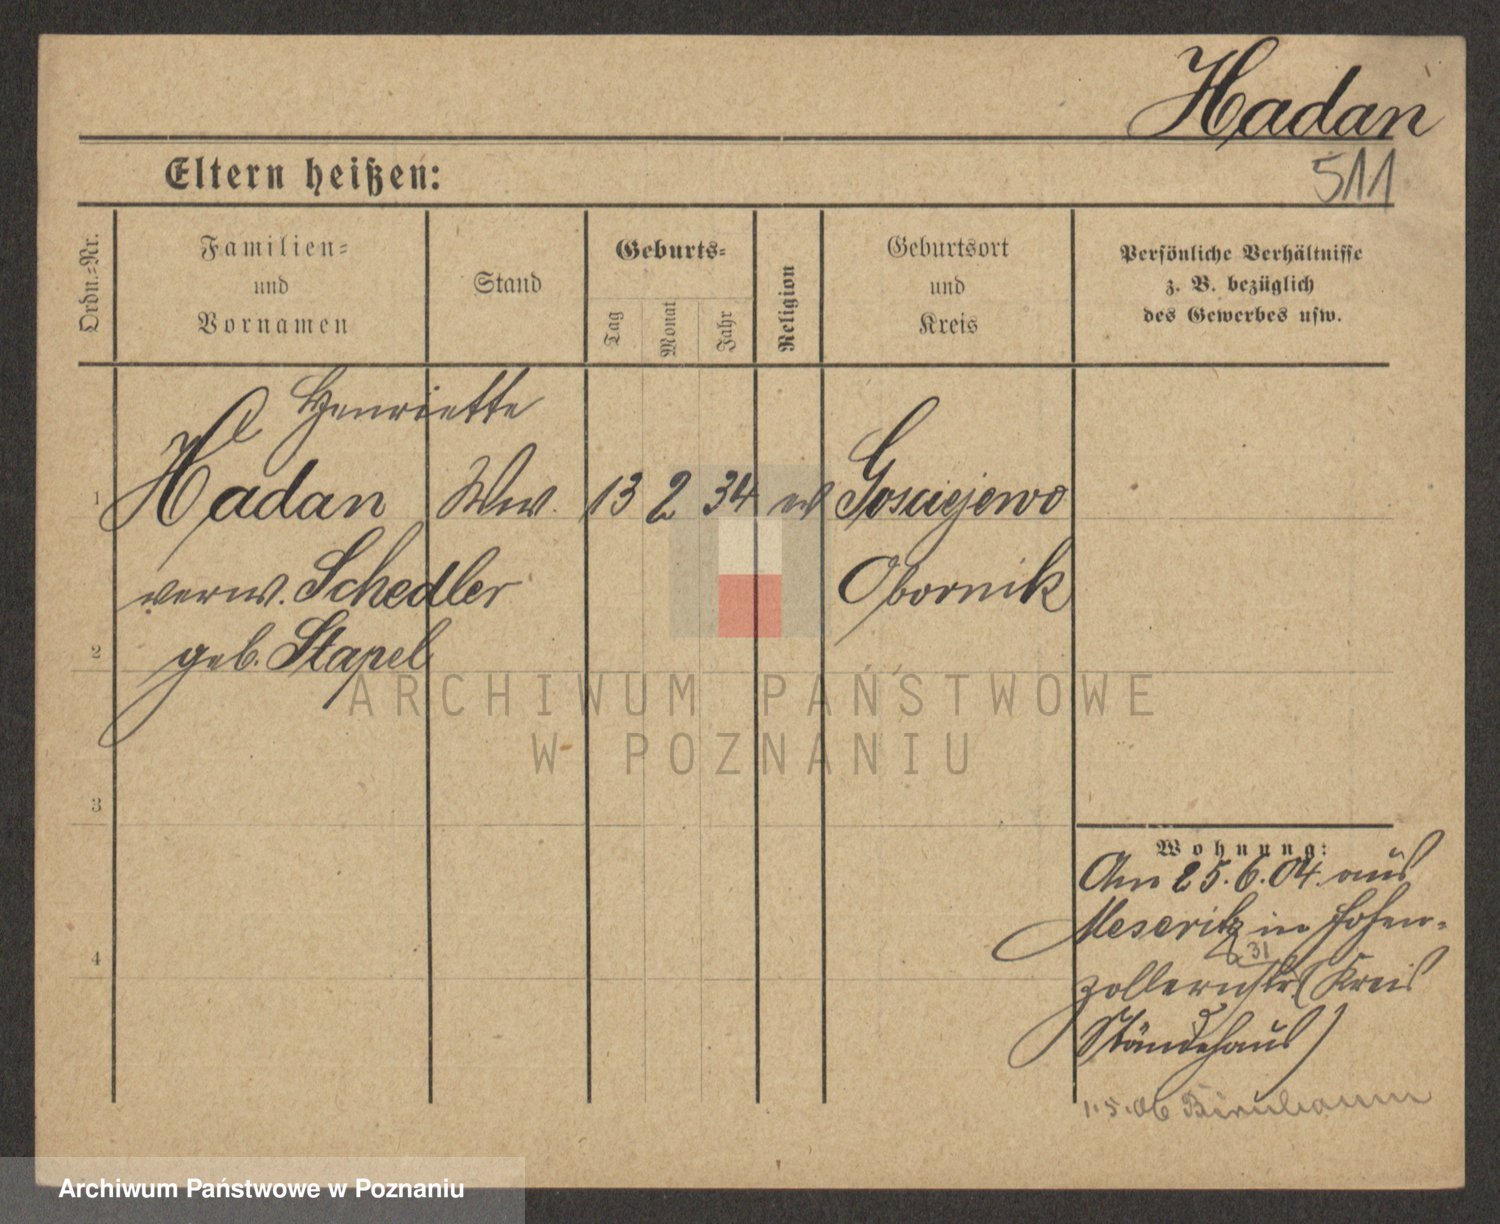 Hadan
511
Eltern heißen:
Ordn.=Nr.
Familien=
und
Vornamen
Stand
Geburts=
Tag
Monat
Jahr
Religion
Geburtsort
und
Kreis
Persönliche Verhältnisse
z. B. bezüglich
des Gewerbes usw.
Henriette
1 Hadan Ww. 13 2 34 ev Gosciejewo
verw. Schedler Obornik
2 geb. Stapel
3
4
Wohnung:
Am 25.6.04. aus
Meseritz in Hohen-
31
zollernstr. (Kreis
Ständehaus)
1.5.06 Birnbaum
ARCHIWUM PAŃSTWOWE
W POZNANIU
Archiwum Państwowe w Poznaniu